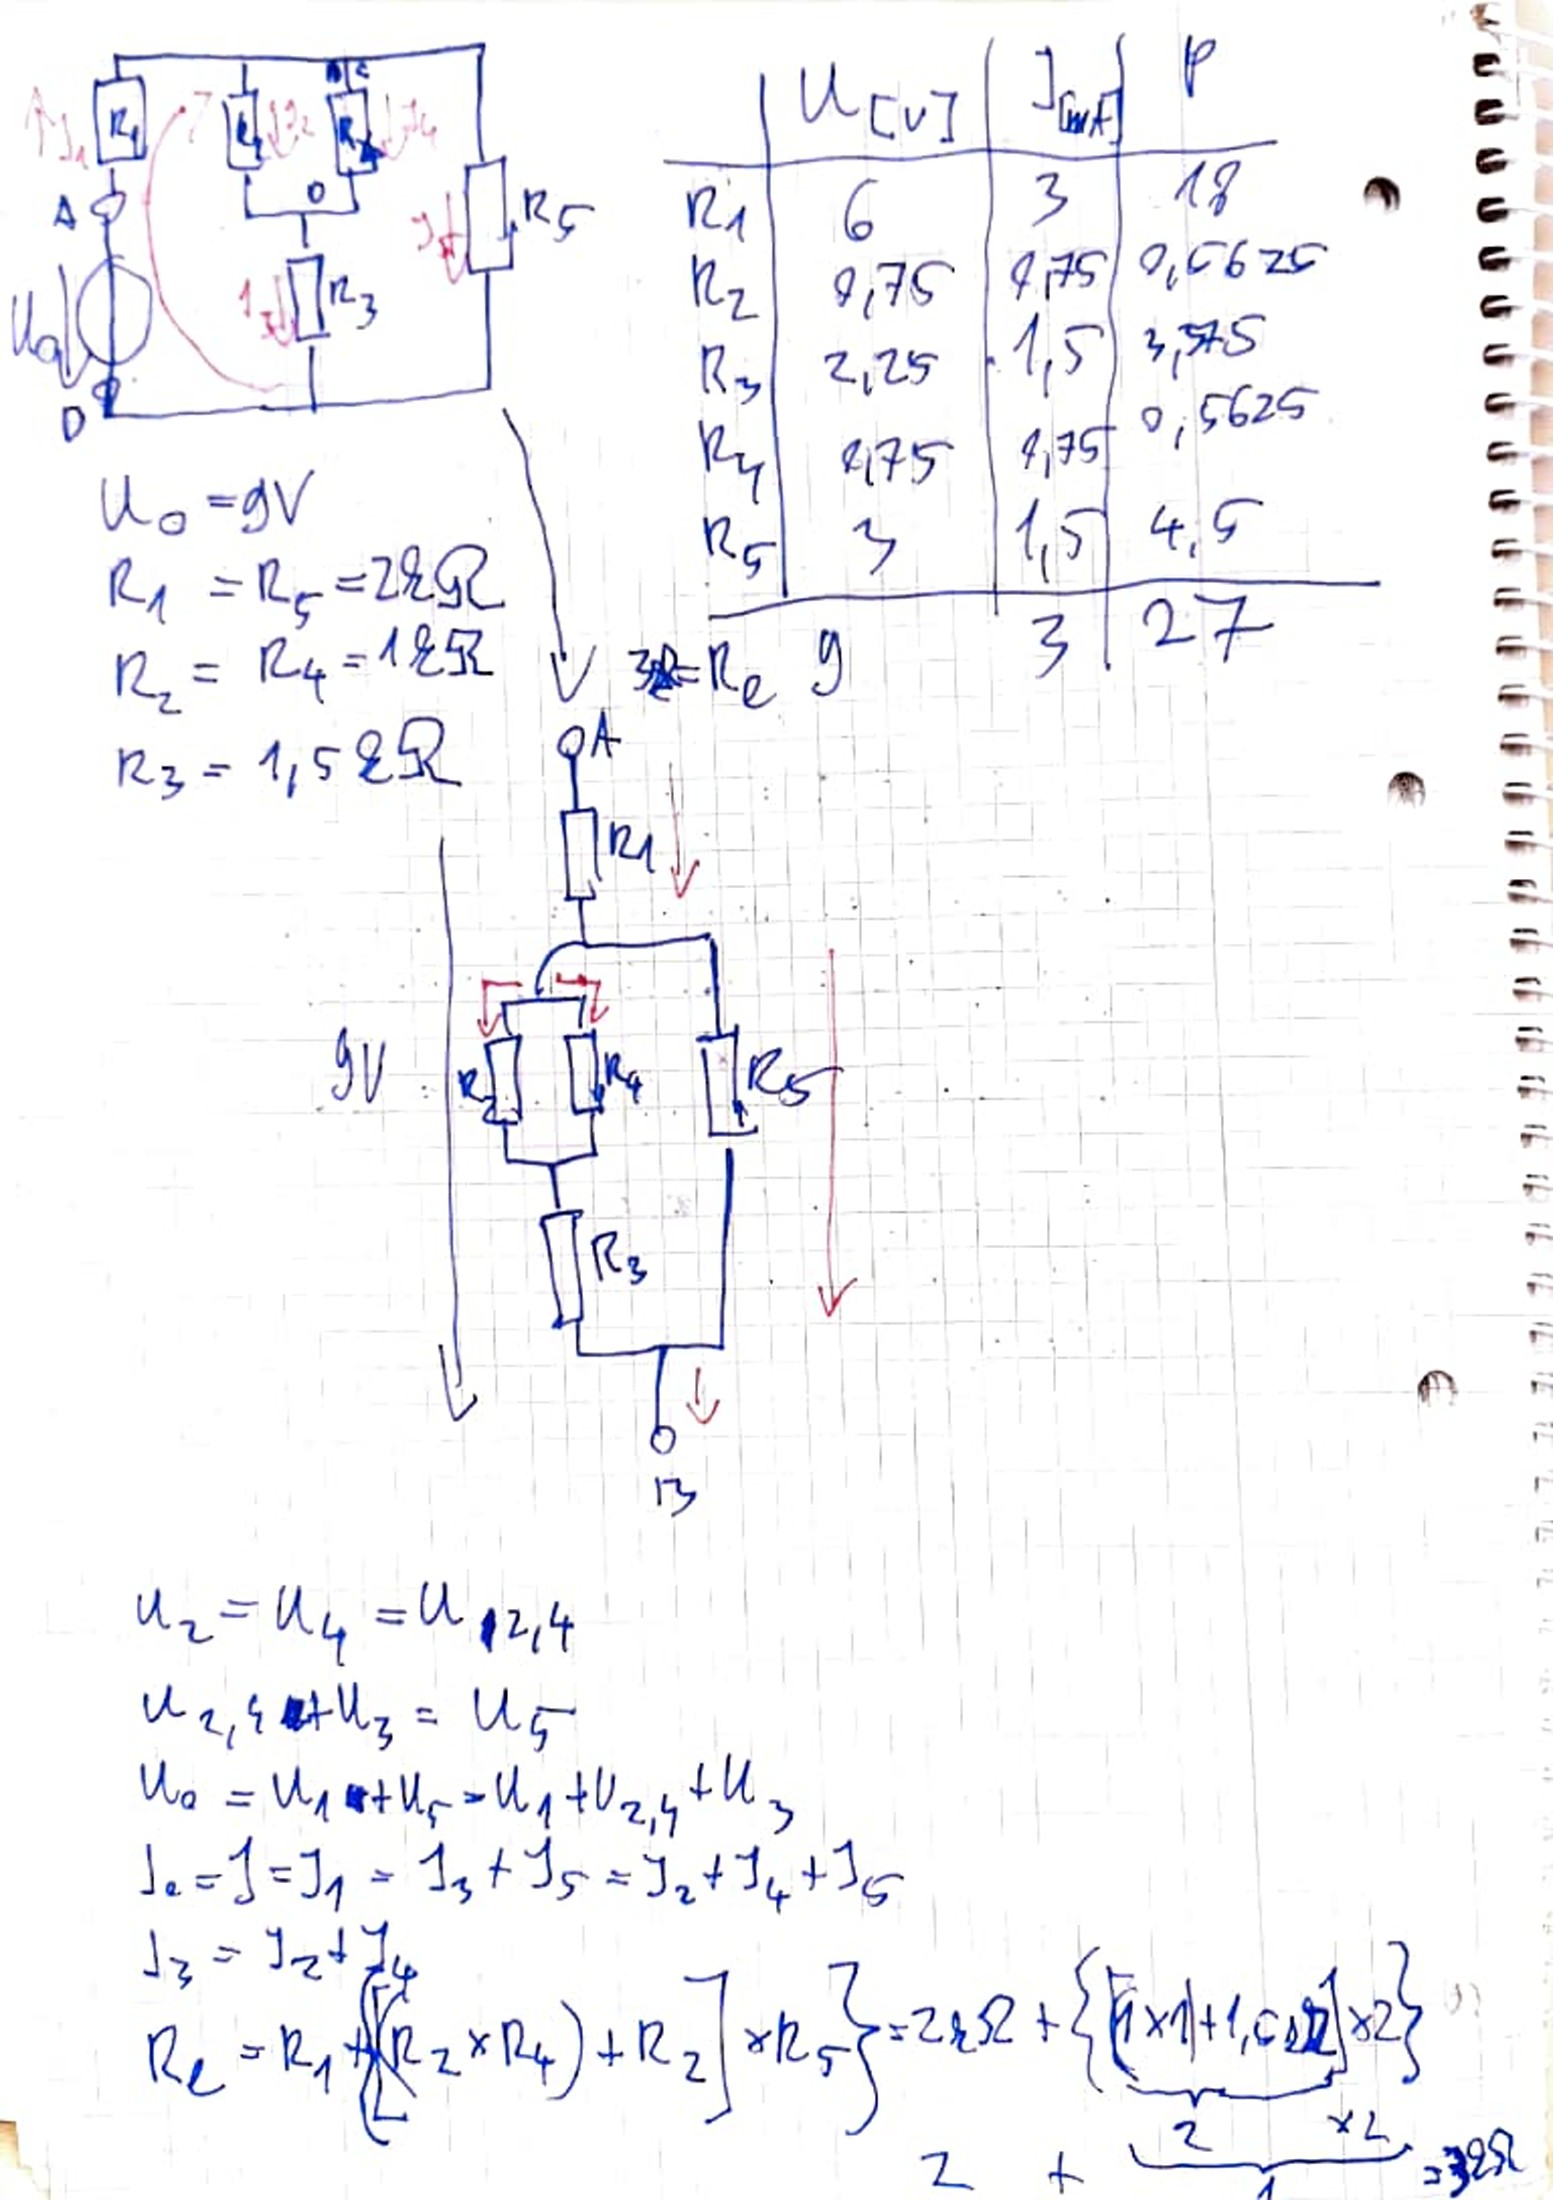 R1
R2
C
J1
J2
J4
A
D
R5
J3
R3
U0
D
U [V] J [mA] P
R1 6 3 18
R2 0,75 0,75 0,5625
R3 2,25 1,5 3,375
R4 0,75 0,75 0,5625
R5 3 1,5 4,5
Re 9 3 27
U0 = 9V
R1 = R5 = 2kΩ
R2 = R4 = 1kΩ
R3 = 1,5kΩ
A
R1
9V
R2 R4 R5
R3
B
U2 = U4 = U 2,4
U2,4 + U3 = U5
U0 = U1 + U5 = U1 + U2,4 + U3
Je = J = J1 = J3 + J5 = J2 + J4 + J5
J3 = J2 + J4
Re = R1 + {[(R2 × R4) + R2] × R5} = 2kΩ + {[1×1+1,5kΩ]×2}
2 ×2
2 + 1 = 3kΩ